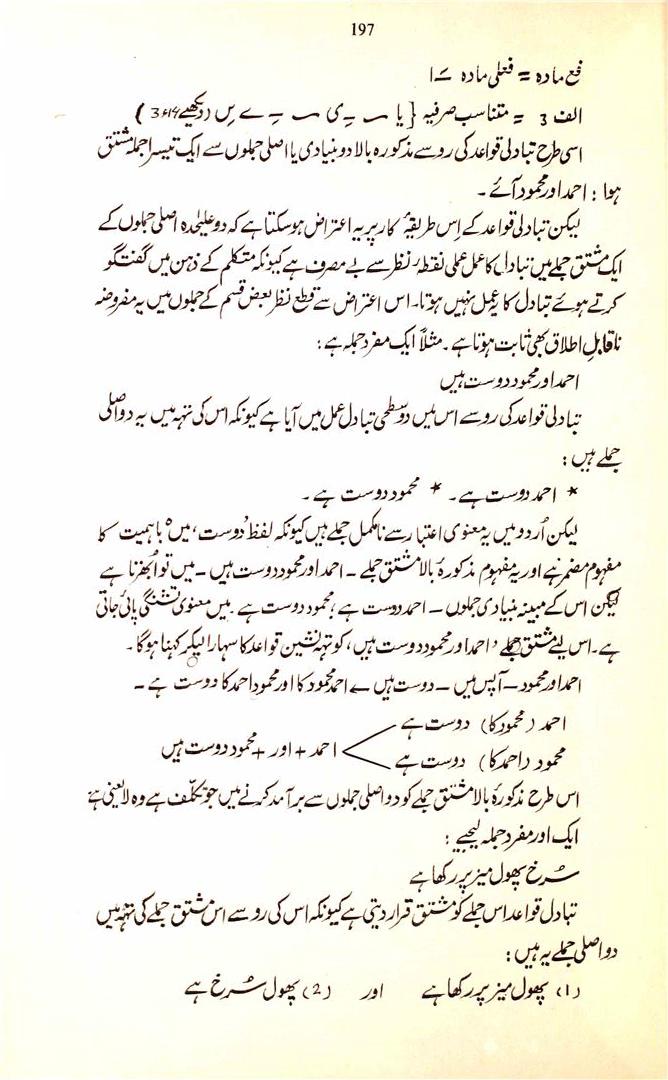 197
فع مادہ = فعلی مادہ ے ا
الف 3 = متناسب صرفیہ {یا ـــ ی ـــ ے یں (دیکھیے
اسی طرح تبادلی قواعد کی رو سے مذکورہ بالا دو بنیادی یا اصلی جملوں سے ایک تیسرا جملہ مشتق
ہوا : احمد اور محمود آئے ۔
لیکن تبادلی قواعد کے اِس طریقۂ کار پر یہ اعتراض ہو سکتا ہے کہ دو علیٰحدہ اصلی جملوں کے
ایک مشتق جملے میں تبادل کا عمل عملی نقطۂ نظر سے بے مصرف ہے کیونکہ متکلم کے ذہن میں گفتگو
کرتے ہوئے تبادل کا یہ عمل نہیں ہوتا۔ اس اعتراض سے قطع نظر بعض قسم کے جملوں میں یہ مفروضہ
ناقابلِ اطلاق بھی ثابت ہوتا ہے ۔ مثلاً ایک مفرد جملہ ہے :
احمد اور محمود دوست ہیں
تبادلی قواعد کی رو سے اس میں دو سطحی تبادل عمل میں آیا ہے کیونکہ اس کی تہہ میں یہ دو اصلی
جملے ہیں :
* احمد دوست ہے ۔ * محمود دوست ہے ۔
لیکن اُردو میں یہ معنوی اعتبار سے نامکمل جملے ہیں کیونکہ لفظ 'دوست' میں ہ باہمیت کا
مفہوم مضمر ہے اور یہ مفہوم مذکورۂ بالا مشتق جملے ـ احمد اور محمود دوست ہیں ـ میں تو اُبھرتا ہے
لیکن اس کے مبینہ بنیادی جملوں ـ احمد دوست ہے ؛ محمود دوست ہے ۔ میں معنوی تشنگی پائی جاتی
ہے۔ اس لیے مشتق جملے 'احمد اور محمود دوست ہیں' کو تہہ نشین قواعد کا سہارا لیکر کہنا ہوگا ۔
احمد اور محمود ـ آپس میں ـ دوست ہیں ← احمد محمود کا اور محمود احمد کا دوست ہے ۔
احمد (محمود کا) دوست ہے
احمد + اور + محمود دوست ہیں
محمود (احمد کا) دوست ہے
اس طرح مذکورۂ بالا مشتق جملے کو دو اصلی جملوں سے برآمد کرنے میں جو تکلّف ہے وہ لایعنی ہے
ایک اور مفرد جملہ لیجیے :
سُرخ پھول میز پر رکھا ہے
تبادل قواعد اس جملے کو مشتق قرار دیتی ہے کیونکہ اس کی رو سے اس مشتق جملے کی تہہ میں
دو اصلی جملے یہ ہیں :
(1) پھول میز پر رکھا ہے اور (2) پھول سُرخ ہے